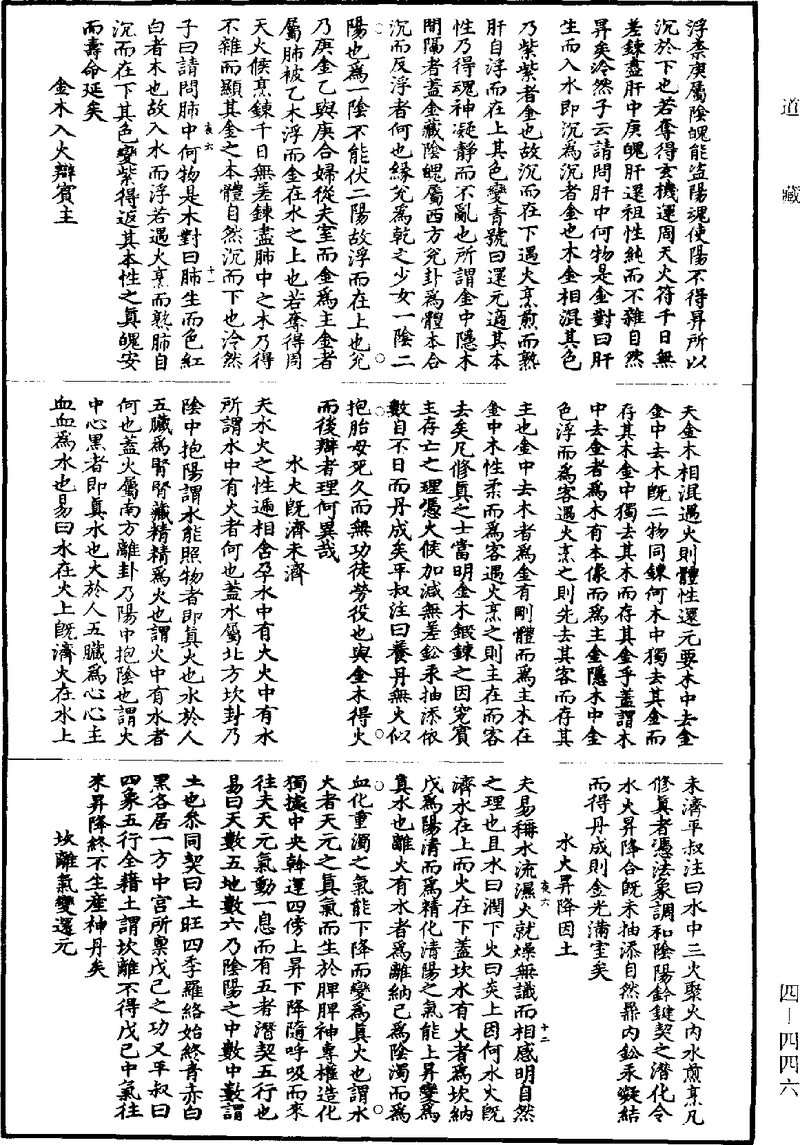 道藏
浮柰庚屬陰魄能盜陽魂使陽不得昇所以
沉於下也若奪得玄機運周天火符千日無
差鍊盡肝中庚魄肝還祖性純而不雜自然
昇矣泠然子云請問肝中何物是金對曰肝
生而入水即沉為沉者金也木金相混其色
乃紫紫者金也故沉而在下遇火烹煎而熟
肝自浮而在上其色變青號曰還元適其本
性乃得魂神凝靜而不亂也所謂金中隱木
間陽者蓋金藏陰魄屬西方兊卦爲體本合
沉而反浮者何也緣兊爲乾之少女一陰二
陽也爲一陰不能伏二陽故浮而在上也兊
乃庚金乙與庚合婦從夫室而金爲主金者
屬肺被乙木浮而金在水之上也若奪得周
天火候烹鍊千日無差鍊盡肺中之木乃得
不雜而顯其金之本體自然沉而下也泠然
子曰請問肺中何物是木對曰肺生而色紅
白者木也故入水而浮若遇火烹而熟肺自
沉而在下其色變紫得返其本性之真魄安
而壽命延矣
金木入火辯賓主
夫金木相混遇火則體性還元要木中去金
金中去木旣二物同鍊何木中獨去其金而
存其木金中獨去其木而存其金乎蓋謂木
中去金者爲木有本像而爲主金隱木中金
色浮而爲客遇火烹之則先去其客而存其
主也金中去木者爲金有剛體而爲主木在
金中木性柔而爲客遇火烹之則主在而客
去矣凡修真之士當明金木鍛鍊之因究賓
主存亡之理憑火候加減無差鈆汞抽添依
數自不日而丹成矣平叔注曰養丹無火似
抱胎母死久而無功徒勞役也與金木得火
而後辯者理何異哉
水火旣濟未濟
夫水火之性遞相含孕水中有火火中有水
所謂水中有火者何也蓋水屬北方坎卦乃
陰中抱陽謂水能照物者即真火也水於人
五臟爲腎腎藏精精爲火也謂火中有水者
何也蓋火屬南方離卦乃陽中抱陰也謂火
中心黑者即真水也火於人五臟爲心心主
血血爲水也易曰水在火上旣濟火在水上
未濟平叔注曰水中三火聚火內水煎烹凡
修真者憑法象調和陰陽鈐鍵契之潛化令
水火昇降合旣未抽添自然鼎內鈆汞凝結
而得丹成則金光滿室矣
水火昇降因土
夫易稱水流濕火就燥無識而相感明自然
之理也且水曰潤下火曰炎上因何水火旣
濟水在上而火在下蓋坎水有火者爲坎納
戊爲陽清而爲精化清陽之氣能上昇變爲
真水也離火有水者爲離納己爲陰濁而爲
血化重濁之氣能下降而變爲真火也謂水
火者天元之真氣而生於脾脾神專權造化
獨據中央斡運四傍上昇下降隨呼吸而來
往夫天元氣動一息而有五者潛契五行也
易曰天數五地數六乃陰陽之中數中數謂
土也參同契曰土旺四季羅絡始終青赤白
黑各居一方中宮所稟戊己之功又平叔曰
四象五行全藉土謂坎離不得戊己中氣往
來昇降終不生產神丹矣
坎離氣變還元
夜六
十一
夜六
十二
四—四四六